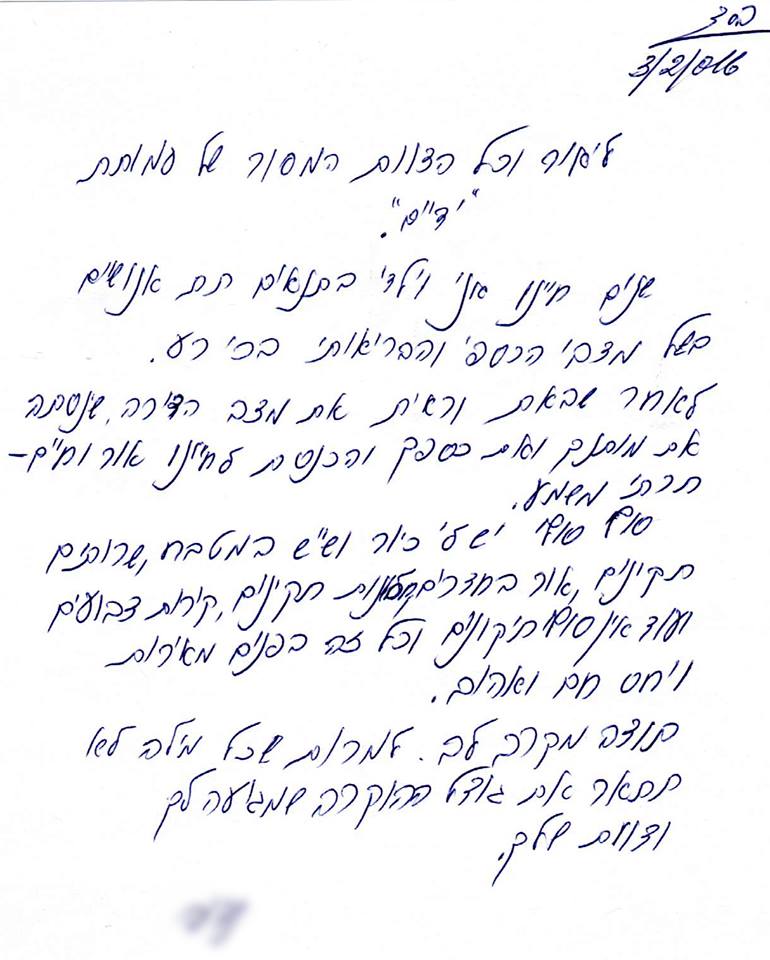 בס"ד
3/2/016
ליאור וכל הצוות המסור של עמותת
"ידיים".
שנים חיינו אני וילדי בתנאים תת אנושיים
בשל מצבי הכספי והבריאותי בכי רע.
לאחר שבאת וראית את מצב הדירה, שינסת
את מותנך ואת כספך והכנסת לחיינו אור וחיים -
תרתי משמע.
סוף סוף יש לי כיור ושיש במטבח, שרותים
תקינים, אור בחדרים, חלונות תקינים, קירות צבועים
ועוד אין סוף תיקונים וכל זה בפנים מאירות
ויחס חם ואהוב.
תודה מקרב לב. למרות שכל מילה לא
תתאר את גודל ההוקרה שמגיעה לך
ולצוות שלך.